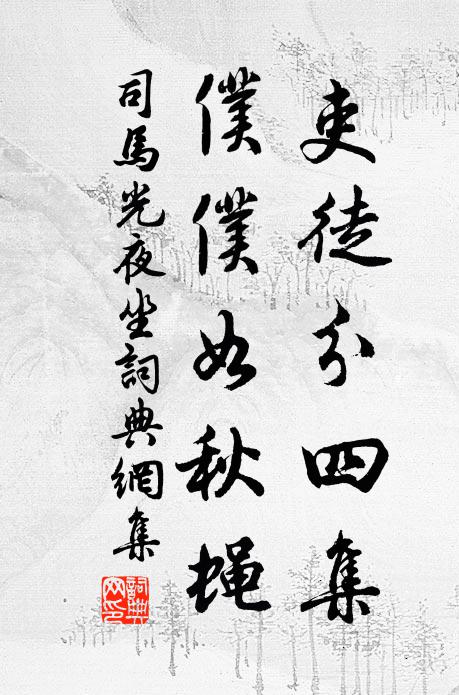 吏徒分四集
僕僕如秋蝇
司馬光夜坐詞典網集
詞典網印